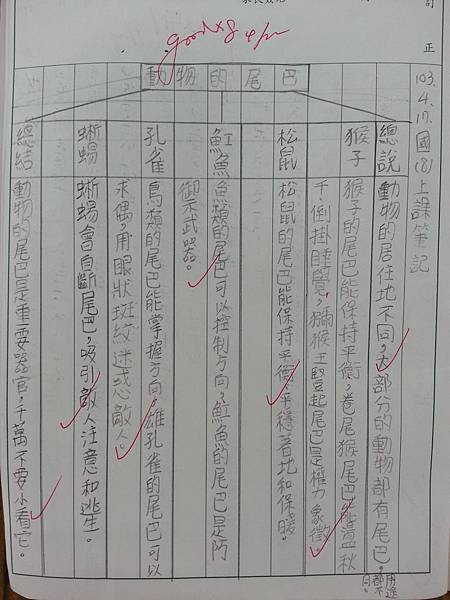 訂
正
103.4.17.國(8)上課筆記
good×8
動物的尾巴
總說 動物的居住地不同,大部分的動物都有尾巴,用途都不同。
猴子 猴子的尾巴能保持平衡,卷尾猴尾巴能盪秋
千、倒掛睡覺,獼猴王豎起尾巴是權力象徵。
松鼠 松鼠的尾巴能保持平衡平穩著地和保暖。
魟魚 魚類的尾巴可以控制方向,魟魚的尾巴是防
禦武器。
孔雀 鳥類的尾巴能掌握方向。雄孔雀的尾巴可以
求偶,用眼狀斑紋迷惑敵人。
蜥蜴 蜥蜴會自斷尾巴,吸引敵人注意和逃生。
總結 動物的尾巴是重要器官,千萬不要小看它。